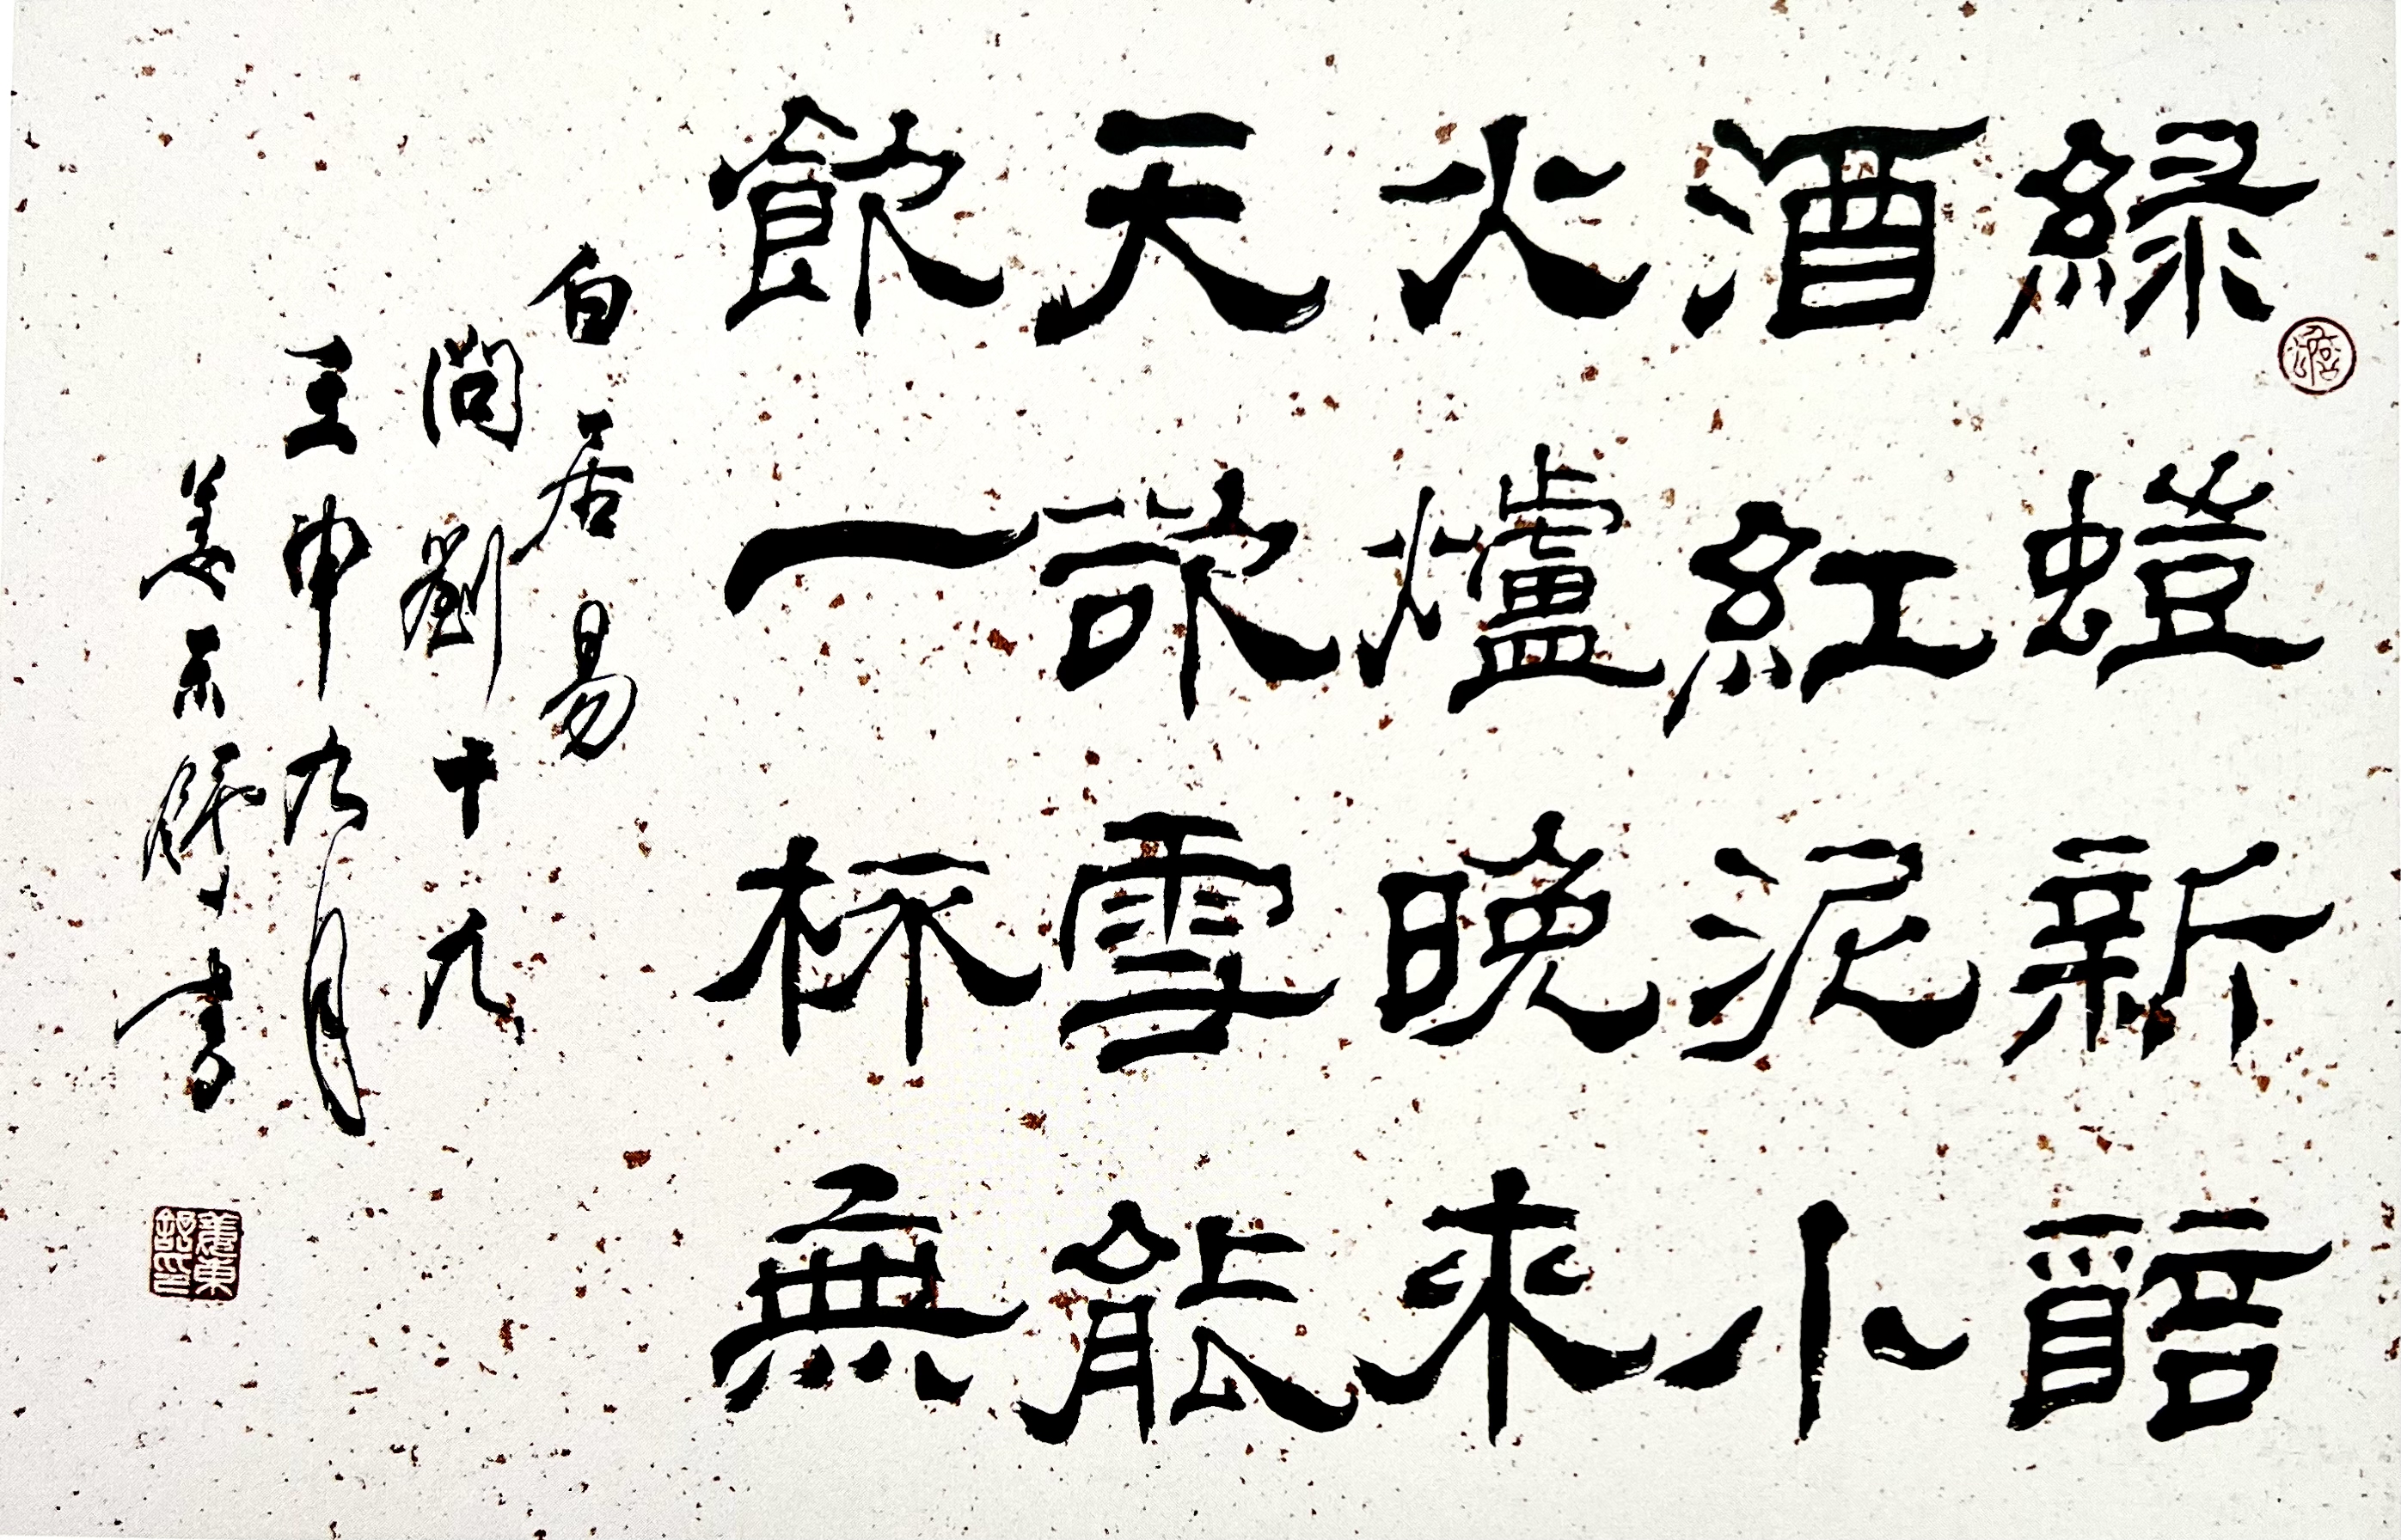 緑螘新醅
酒紅泥小
火爐晚來
天欲雪能
飲一杯無
白居易
問劉十九
壬申九月
姜东舒书
姜東舒印